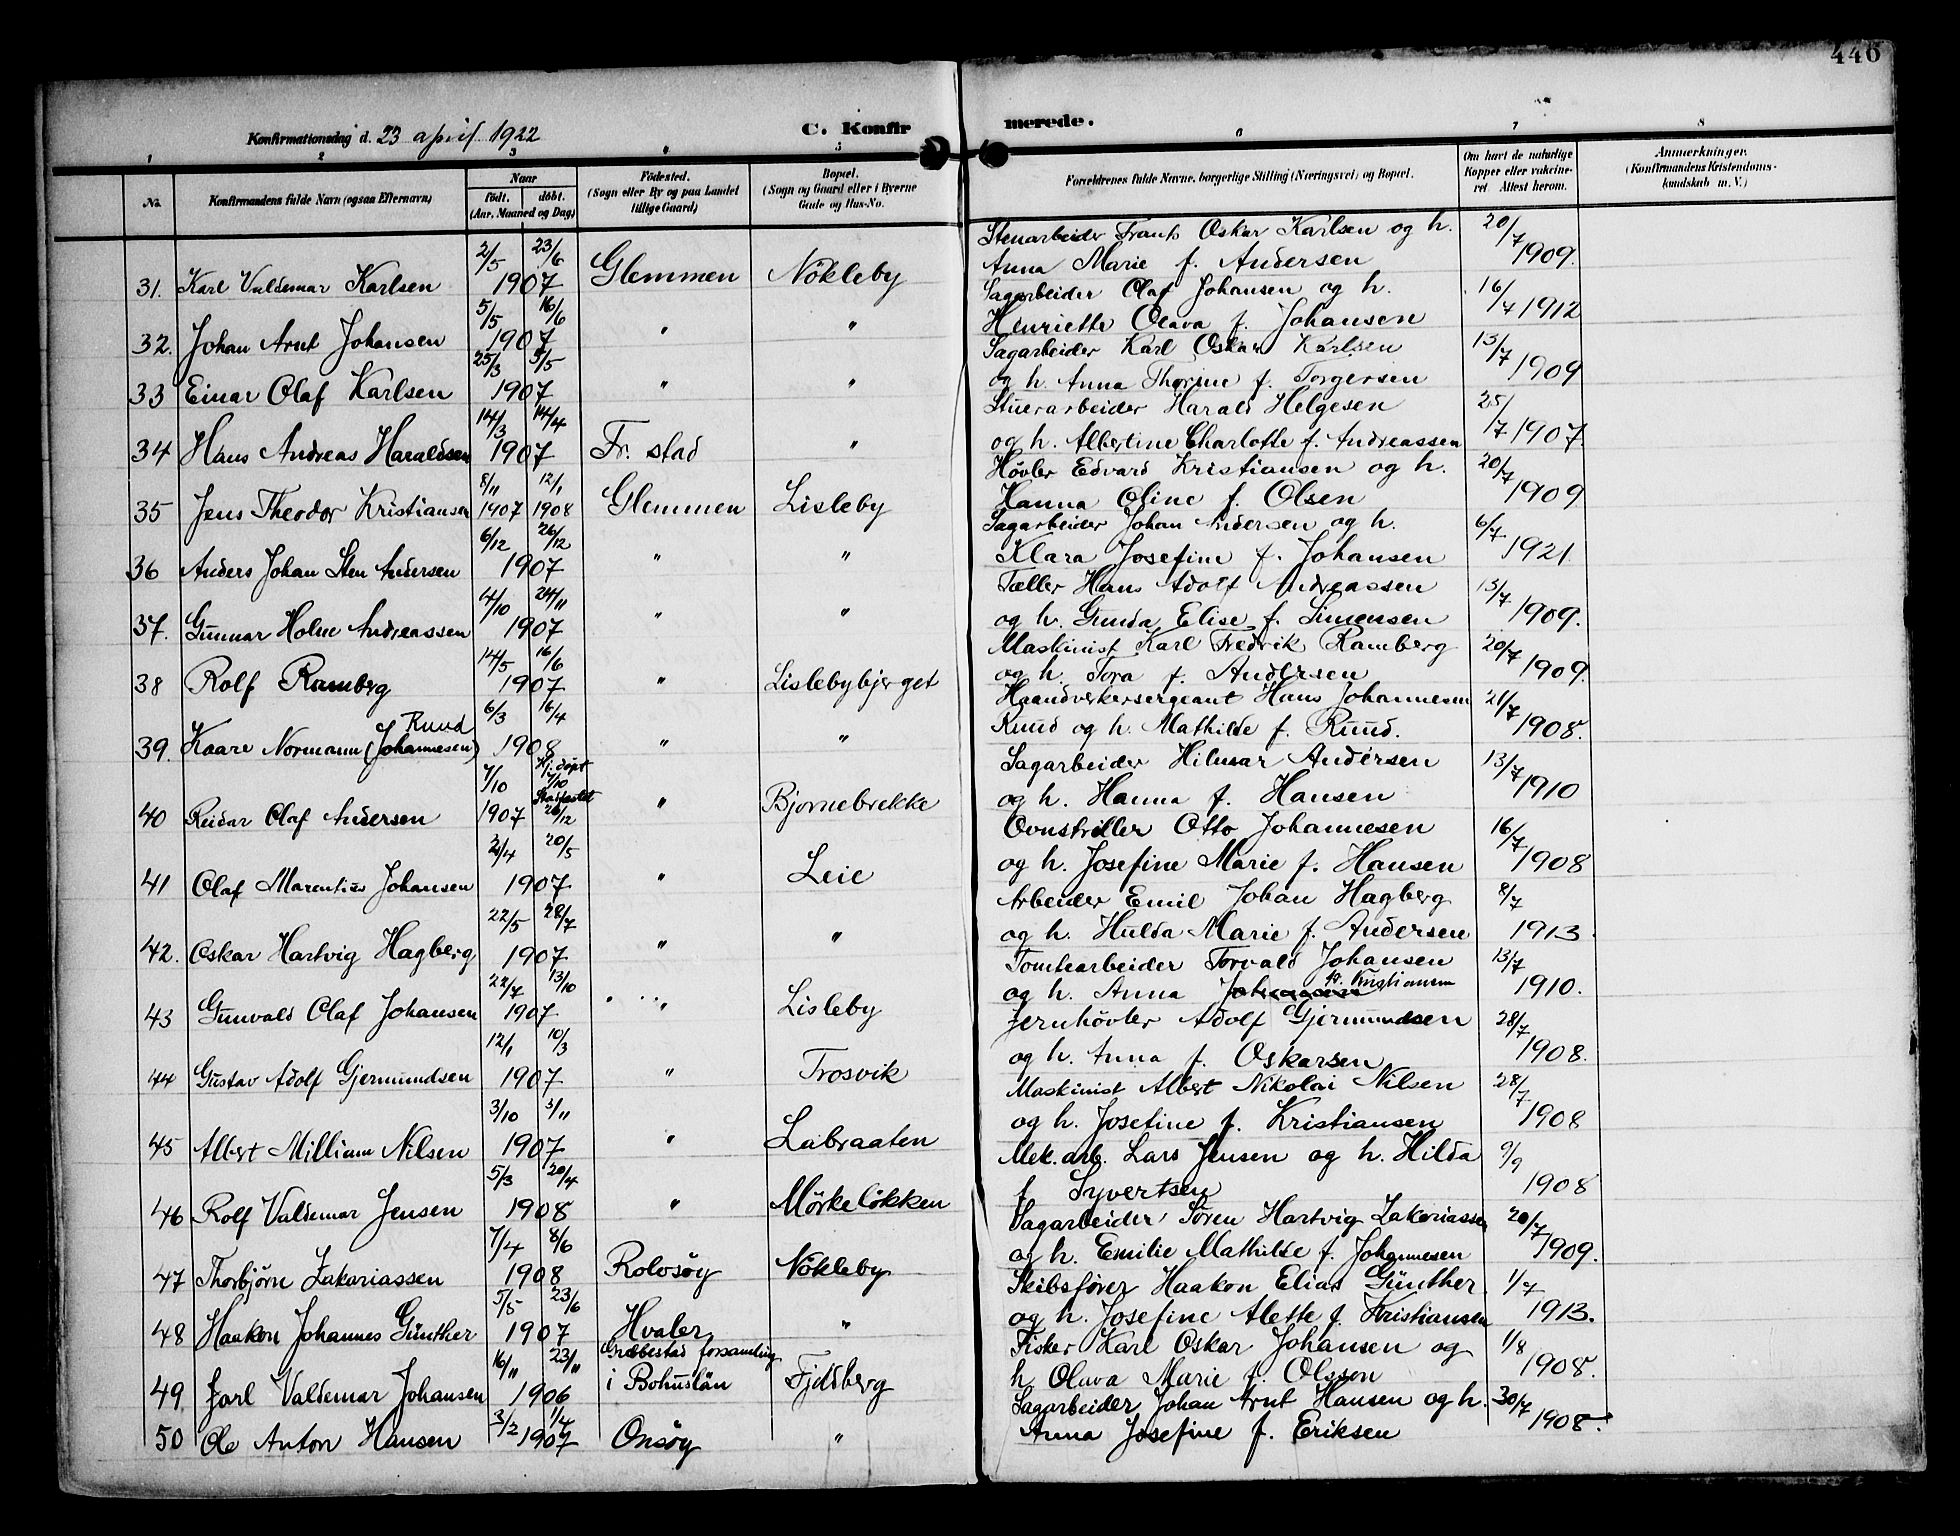 446
Konfirmationsdag d. 23 april 1922
C. Konfirmerede.
1 2 3 4 5 6 7 8
No. Konfirmandens fulde Navn (ogsaa Efternavn) Naar født. døbt. (Aar, Maaned og Dag) Fødested. (Sogn eller By og paa Landet tillige Gaard) Bopæl. (Sogn og Gaard eller i Byerne Gade og Hus-No. Forældrenes fulde Navne, borgerlige Stilling (Næringsvei) og Bopæl. Om havt de naturlige Kopper eller vaccineret Attest herom. Anmerkninger. (Konfirmandens Kristendomskundskab m. V.)
31. Karl Valdemar Karlsen 2/5 23/6 1907 Glemmen Nökleby Stenarbeider Frants Oskar Karlsen og h. Anna Marie f. Andersen 20/7 1909.
32. Johan Arnt Johansen 5/5 16/6 1907 " " Sagarbeider Olaf Johansen og h. Henriette Olava f. Johansen 16/4 1912
33 Einar Olaf Karlsen 25/3 5/5 1907 " " Sagarbeider Karl Oskar Karlsen og h. Anna Thorine f. Torgersen 13/7 1909
34 Hans Andreas Haraldsen 14/3 14/4 1907 Fr. stad " Stuerarbeider Harald Helgesen og h. Albertine Charlotte f. Andreassen 25/7 1907
35 Jens Theodor Kristiansen 8/11 1907 12/1 1908 Glemmen Lisleby Høvler Edvard Kristiansen og h. Hanna Oline f. Olsen 20/7 1909
36 Anders Johan Sten Andersen 6/12 26/12 1907 " " Sagarbeider Johan Andersen og h. Klara Josefine f. Johansen 6/7 1921.
37. Gunnar Holm Andreassen 4/10 24/11 1907 " " Tæller Hans Adolf Andreassen og h. Gunda Elise f. Simensen 13/7 1909.
38 Rolf Ramberg 14/5 16/6 1907 " Lislebybjerget Maskinist Karl Fredrik Ramberg og h. Tora f. Andersen 20/7 1909.
39. Kaare Normann (Johannesen) Ruud 6/3 16/4 1908 " " Haandverkersergeant Hans Johannesen Ruud og h. Mathilde f. Ruud. 21/7 1908.
40 Reidar Olaf Andersen 7/10 1907 Hj. døpt 7/10 Stadfæstet 26/12 " Bjornebrekke Sagarbeider Hilmar Andersen og h. Hanna f. Hansen 13/7 1910
41 Olaf Marentius Johansen 2/4 20/5 1907 " Leie Ovnstviller Otto Johannesen og h. Josefine Marie f. Hansen 16/7 1908
42. Oskar Hartvig Hagberg 22/5 28/7 1907 " " Arbeider Emil Johan Hagberg og h. Hulda Marie f. Andersen 8/7 1913.
43 Gunvald Olaf Johansen 22/7 13/10 1907 " Lisleby Tomtearbeider Torvald Johansen og h. Anna Johansen f. Kristiansen 13/7 1910.
44 Gustav Adolf Gjermundsen 12/1 10/3 1907 " Trosvik Jernhövler Adolf Gjermundsen og h. Anna f. Oskarsen 28/7 1908.
45 Albert Milliam Nilsen 3/10 3/11 1907 " Labraaten Maskinist Albert Nikolai Nilsen og h. Josefine f. Kristiansen 28/7 1908
46 Rolf Valdemar Jensen 5/3 20/4 1908 " Mörkelökken Mek. arb. Lars Jensen og h. Hilda f Syvertsen 9/9 1908
47 Thorbjørn Zakariassen 7/4 8/6 1908 Rolvsöy Nökleby Sagarbeider Sören Hartvig Zakariassen og h. Emilie Mathilde f. Johannesen 20/7 1909.
48 Haakon Johannes Günther 5/5 23/6 1907 Hvaler " Skibsfører Haakon Elias Günther og h. Josefine Alette f. Kristiansen 1/7 1913.
49. Jarl Valdemar Johansen 16/11 23/11 1906 Grebbestad forsamling i Bohuslän Fjeldberg Fisker Karl Oskar Johansen og h Olava Marie f. Olsson 1/8 1908.
50 Ole Anton Hansen 3/2 1/4 1907 Onsöy " Sagarbeider Johan Arnt Hansen og h. Anna Josefine f. Eriksen 30/7 1908.